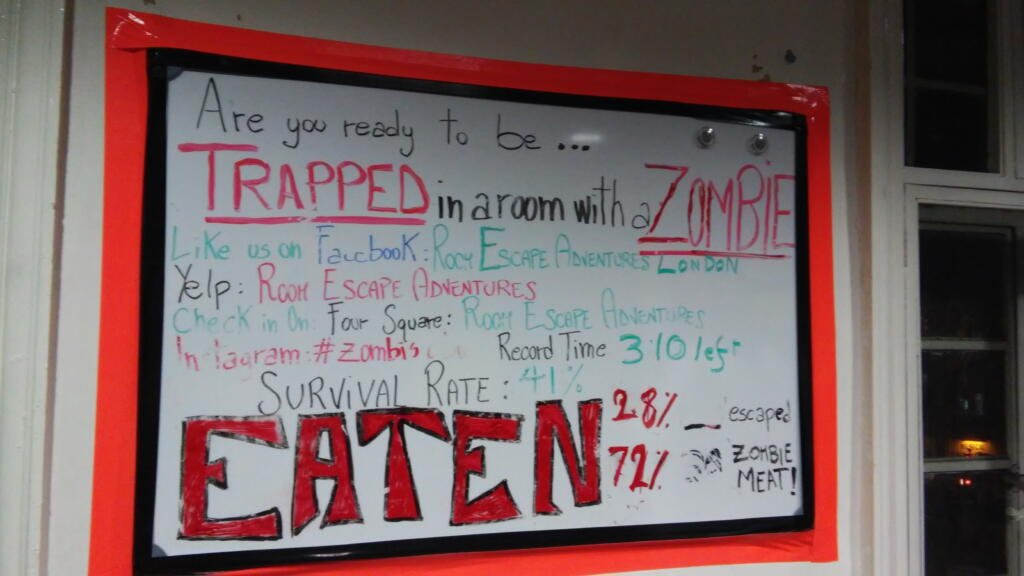 Are you ready to be...
TRAPPED in a room with a ZOMBIE
Like us on Facebook: ROOM ESCAPE ADVENTURES LONDON
Yelp: ROOM ESCAPE ADVENTURES
Check in On: Four Square: ROOM ESCAPE ADVENTURES
Instagram: #zombis Record Time 3:10 left
SURVIVAL RATE: 41%
EATEN
28% escaped
72% ZOMBIE MEAT!